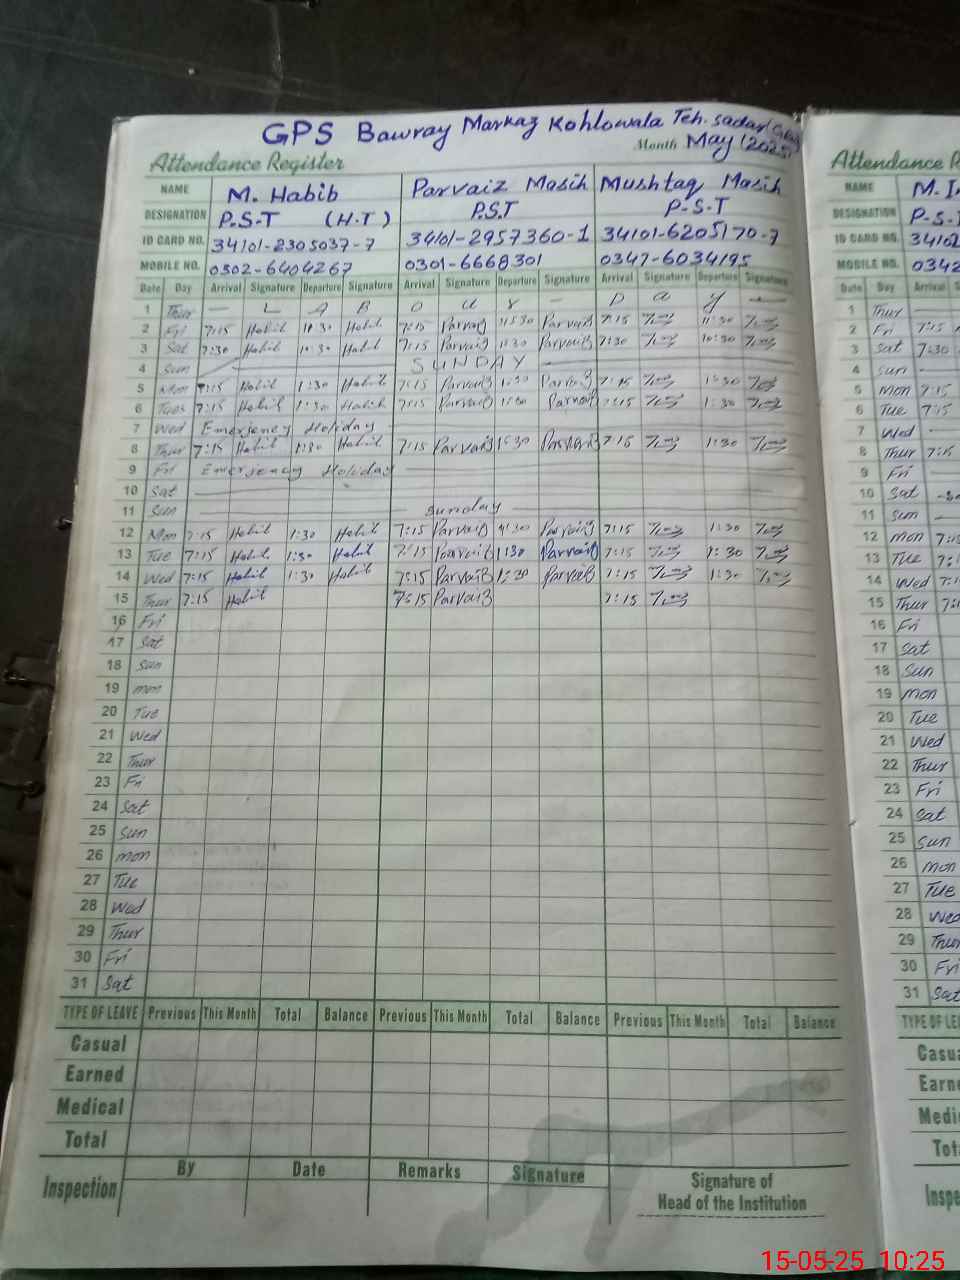 GPS Bawray Markaz Kohlowala Teh. sadar
Attendance Register Month May (2025)
NAME M. Habib Parvaiz Masih Mushtaq Masih
DESIGNATION P.S.T (H.T) P.S.T P-S-T
ID CARD NO. 34101-2305037-7 34101-2957360-1 34101-6205170-7
MOBILE NO. 0302-6404267 0301-6668301 0347-6034195
Date Day Arrival Signature Departure Signature Arrival Signature Departure Signature Arrival Signature Departure Signature
1 Thur — L A B O U R — D a y —
2 Fri 7:15 Habib 11:30 Habib 7:15 Parvaiz 11:30 Parvaiz 7:15 11:30
3 Sat 7:30 Habib 10:30 Habib 7:15 Parvaiz 1:30 Parvaiz 7:30 10:30
4 Sun SUNDAY
5 Mon 7:15 Habib 1:30 Habib 7:15 Parvaiz 1:30 Parvaiz 7:15 1:30
6 Tues 7:15 Habib 1:30 Habib 7:15 Parvaiz 1:30 Parvaiz 7:15 1:30
7 Wed Emergency Holiday
8 Thur 7:15 Habib 1:30 Habib 7:15 Parvaiz 1:30 Parvaiz 7:15 1:30
9 Fri Emergency Holiday
10 Sat
11 Sun Sunday
12 Mon 7:15 Habib 1:30 Habib 7:15 Parvaiz 1:30 Parvaiz 7:15 1:30
13 Tue 7:15 Habib 1:30 Habib 7:15 Parvaiz 1:30 Parvaiz 7:15 1:30
14 Wed 7:15 Habib 1:30 Habib 7:15 Parvaiz 1:30 Parvaiz 7:15 1:30
15 Thur 7:15 Habib 7:15 Parvaiz 7:15
16 Fri
17 Sat
18 Sun
19 mon
20 Tue
21 Wed
22 Thur
23 Fri
24 Sat
25 Sun
26 mon
27 Tue
28 Wed
29 Thur
30 Fri
31 Sat
TYPE OF LEAVE Previous This Month Total Balance Previous This Month Total Balance Previous This Month Total Balance
Casual
Earned
Medical
Total
Inspection By Date Remarks Signature Signature of
Head of the Institution
Attendance
NAME
DESIGNATION P-S-
ID CARD NO. 34102
MOBILE NO. 0342
Date Day Arrival
1 Thur
2 Fri 7:15
3 Sat 7:30
4 Sun
5 mon 7:15
6 Tue 7:15
7 Wed
8 Thur 7:15
9 Fri
10 Sat
11 Sun
12 mon
13 Tue
14 Wed
15 Thur
16 Fri
17 Sat
18 Sun
19 Mon
20 Tue
21 Wed
22 Thur
23 Fri
24 Sat
25 Sun
26 mon
27 Tue
28 Wed
29 Thur
30 Fri
31 Sat
TYPE OF
15-05-25 10:25